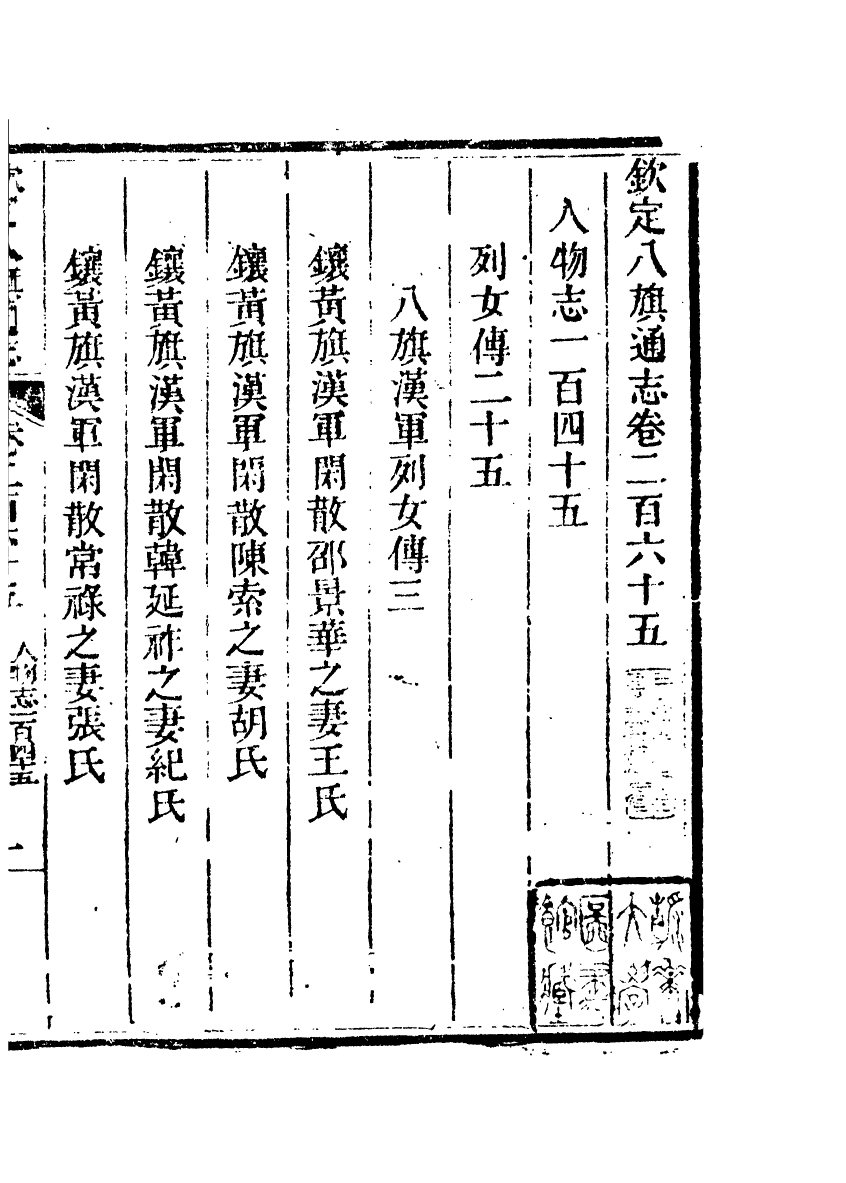 欽定八旗通志卷二百六十五
人物志一百四十五
列女傳二十五
八旗漢軍列女傳三
鑲黃旗漢軍閑散邵景華之妻王氏
鑲黃旗漢軍閑散陳索之妻胡氏
鑲黃旗漢軍閑散韓延祚之妻紀氏
鑲黃旗漢軍閑散常祿之妻張氏
人物志一百四十五
一